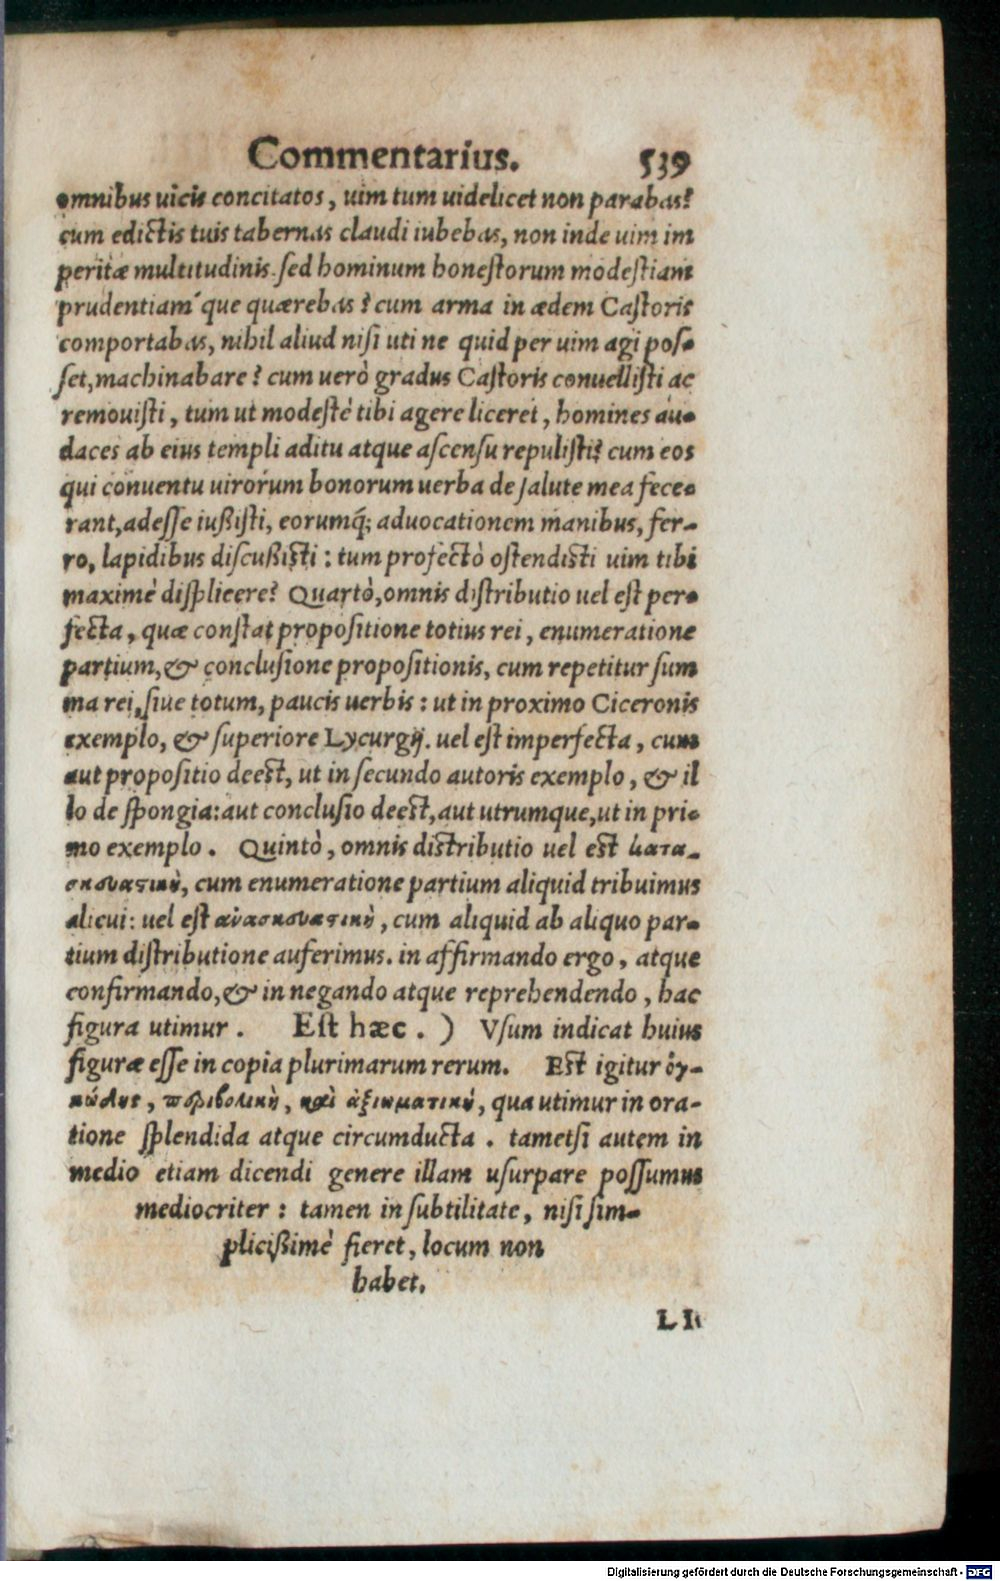 Commentarius. 539
omnibus uicis concitatos, uim tum uidelicet non parabas?
cum edictis tuis tabernas claudi iubebas, non inde uim im
peritæ multitudinis, sed hominum honestorum modestiam
prudentiam´que quærebas? cum arma in ædem Castoris
comportabas, nihil aliud nisi uti ne quid per uim agi pos-
set, machinabare? cum uerò gradus Castoris conuellisti ac
remouisti, tum ut modestè tibi agere liceret, homines au-
daces ab eius templi aditu atque ascensu repulisti? cum eos
qui conuentu uirorum bonorum uerba de salute mea fece-
rant, adesse iußisti, eorumq́; aduocationem manibus, fer-
ro, lapidibus discußisti: tum profectò ostendisti uim tibi
maximè displicere? Quartò, omnis distributio uel est per-
fecta, quæ constat propositione totius rei, enumeratione
partium, & conclusione propositionis, cum repetitur sum
ma rei, siue totum, paucis uerbis: ut in proximo Ciceronis
exemplo, & superiore Lycurgij. uel est imperfecta, cum
aut propositio deest, ut in secundo autoris exemplo, & il
lo de spongia: aut conclusio deest, aut utrumque, ut in pri-
mo exemplo. Quintò, omnis distributio uel est κατα-
σκευαστικὴ, cum enumeratione partium aliquid tribuimus
alicui: uel est ἀνασκευαστικὴ, cum aliquid ab aliquo par-
tium distributione auferimus. in affirmando ergo, atque
confirmando, & in negando atque reprehendendo, hac
figura utimur. Est hæc. ) Vsum indicat huius
figuræ esse in copia plurimarum rerum. Est igitur ὀγ-
κώδης, περιβολικὴ, καὶ ἀξιωματικὴ, qua utimur in ora-
tione splendida atque circumducta. tametsi autem in
medio etiam dicendi genere illam usurpare possumus
mediocriter: tamen in subtilitate, nisi sim-
plicißimè fieret, locum non
habet.
Digitalisierung gefördert durch die Deutsche Forschungsgemeinschaft - DFG